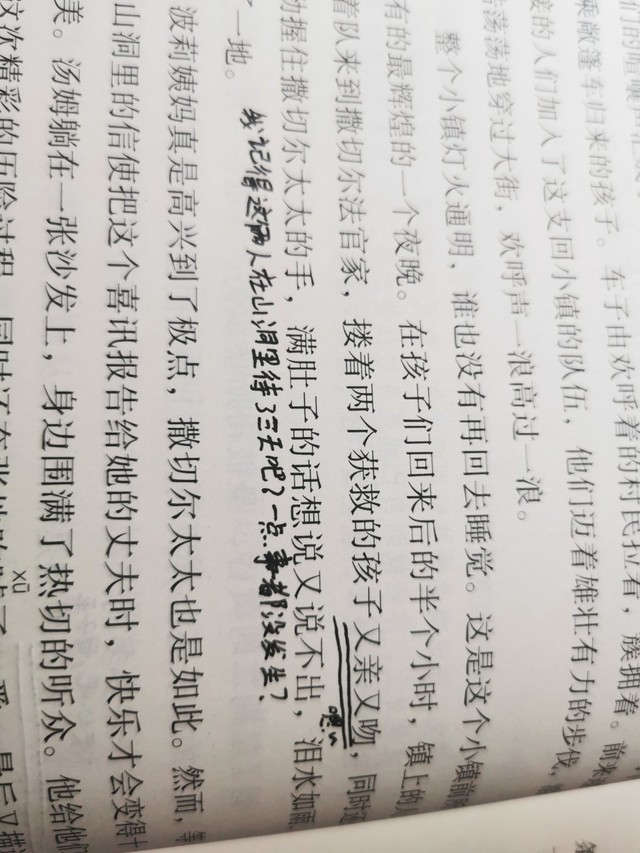 们的喧嚷
乘敞篷车归来的孩子。车子由欢呼着的村民拉着，簇拥着。前来
接的人们加入了这支回小镇的队伍，他们迈着雄壮有力的步伐，
荡荡地穿过大街，欢呼声一浪高过一浪。
整个小镇灯火通明，谁也没有再回去睡觉。这是这个小镇前所
有的最辉煌的一个夜晚。在孩子们回来后的半个小时，镇上的
着队来到撒切尔法官家，搂着两个获救的孩子又亲又吻，同时
动握住撒切尔太太的手，满肚子的话想说又说不出，泪水如雨
一地。
我记得这两人在山洞里待了三天吧？一点事都没发生？
波莉姨妈真是高兴到了极点，撒切尔太太也是如此。然而，等
山洞里的信使把这个喜讯报告给她的丈夫时，快乐才会变得十
美。汤姆躺在一张沙发上，身边围满了热切的听众。他给他们
xū
这次精彩的历险过程，同时还夸张地 最后又描